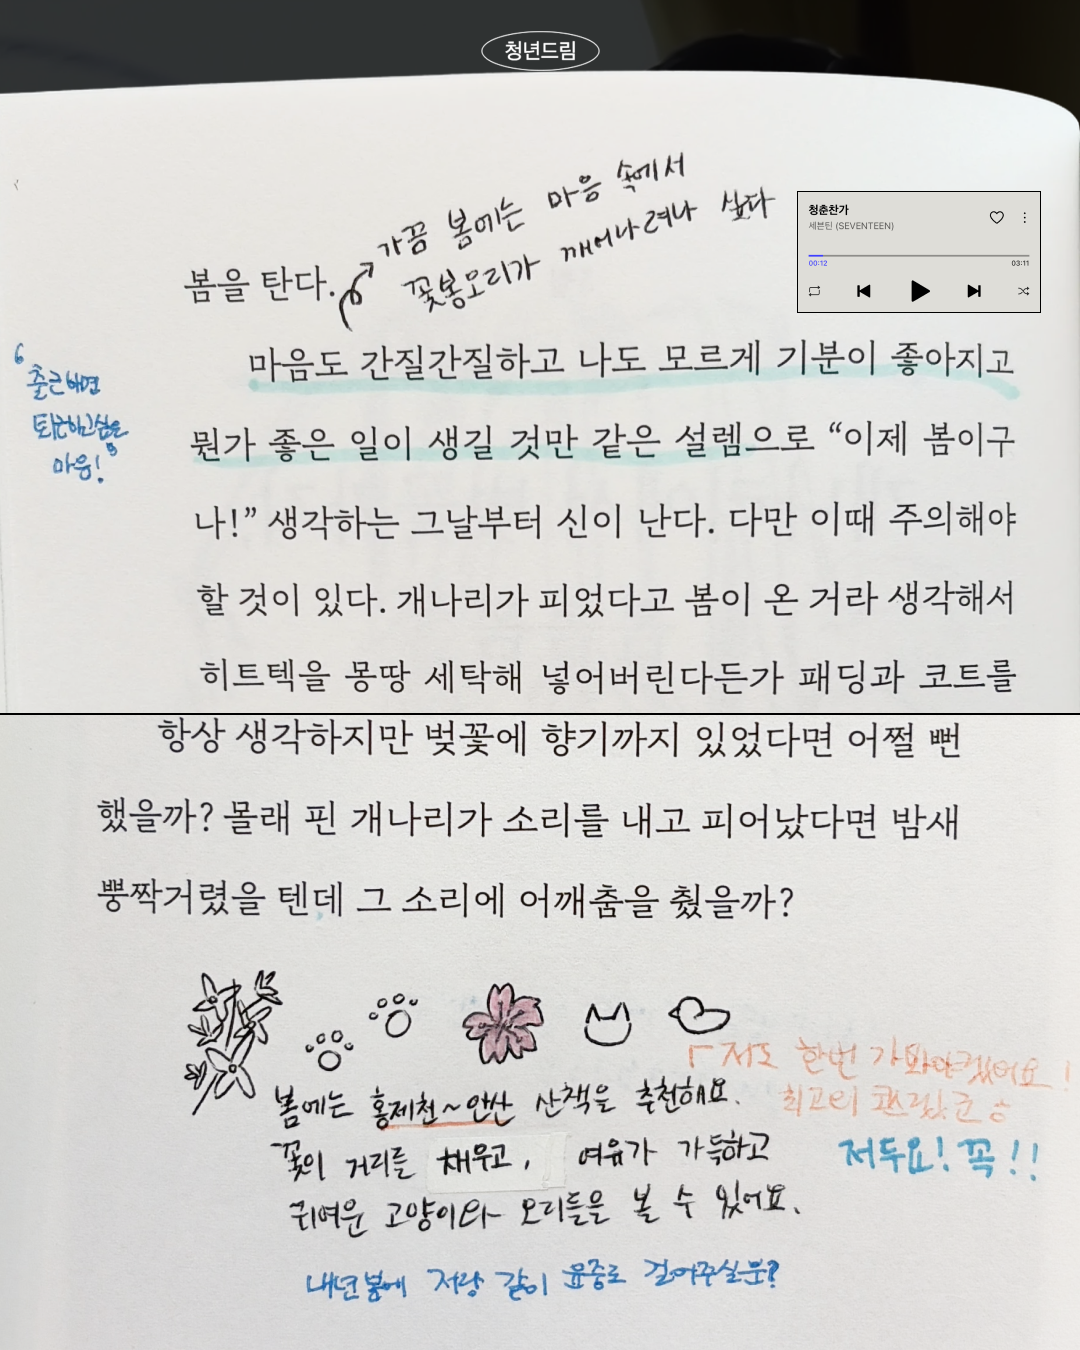 청년드림
가끔 봄에는 마음 속에서
꽃봉오리가 깨어나려나 싶다
청춘찬가
세븐틴 (SEVENTEEN)
00:12
03:11
봄을 탄다.
마음도 간질간질하고 나도 모르게 기분이 좋아지고
출근하면
퇴근하고싶은
마음!
뭔가 좋은 일이 생길 것만 같은 설렘으로 “이제 봄이구
나!” 생각하는 그날부터 신이 난다. 다만 이때 주의해야
할 것이 있다. 개나리가 피었다고 봄이 온 거라 생각해서
히트텍을 몽땅 세탁해 넣어버린다든가 패딩과 코트를
항상 생각하지만 벚꽃에 향기까지 있었다면 어쩔 뻔
했을까? 몰래 핀 개나리가 소리를 내고 피어났다면 밤새
뿡짝거렸을 텐데 그 소리에 어깨춤을 췄을까?
저도 한번 가봐야겠어요!
봄에는 홍제천~안산 산책을 추천해요.
최고의
꽃이 거리를 채우고, 여유가 가득하고
저두요! 꼭!!
귀여운 고양이와 오리들을 볼 수 있어요.
내년봄에 저랑 같이 윤중로 걸어주실분?